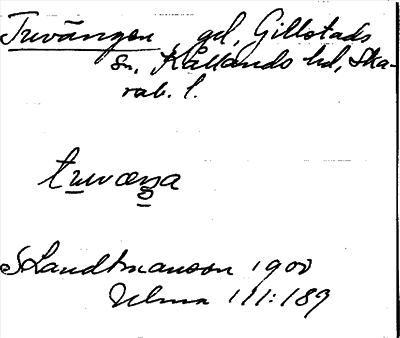 Tuvängen, gd, Gillstads
sn, Kållands hd, Ska-
rab. l.
SLandtmanson 1900
Ulma 111:189